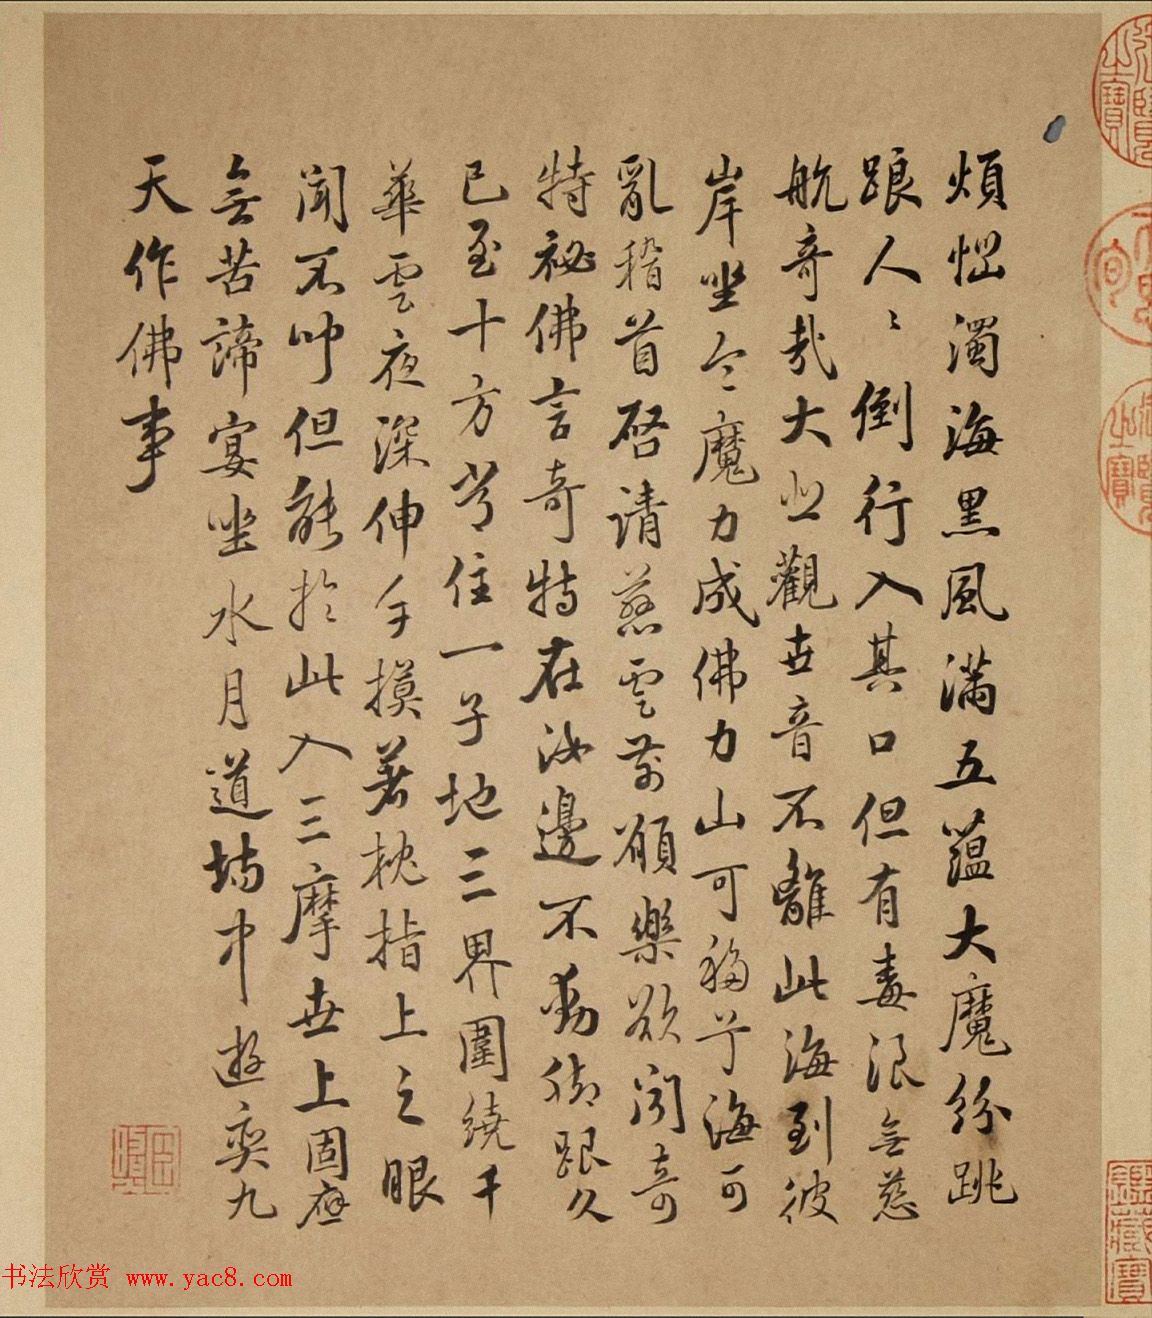 煩惱濁海黑風滿五蕰大魔紛跳
踉人〻倒行入其口但有毒浪無慈
航奇哉大悲觀世音不離此海到彼
岸坐令魔力成佛力山可移兮海可
亂稽首啓請慈雲前願樂欲聞奇
特祕佛言奇特在汝邊不動腳跟久
已至十方并住一子地三界圍繞千
華雲夜深伸手摸著枕指上之眼
聞不聞但能於此入三摩世上固應
無苦諦宴坐水月道場中遊奕九
天作佛事
鑑藏寶
书法欣赏 www.yac8.com